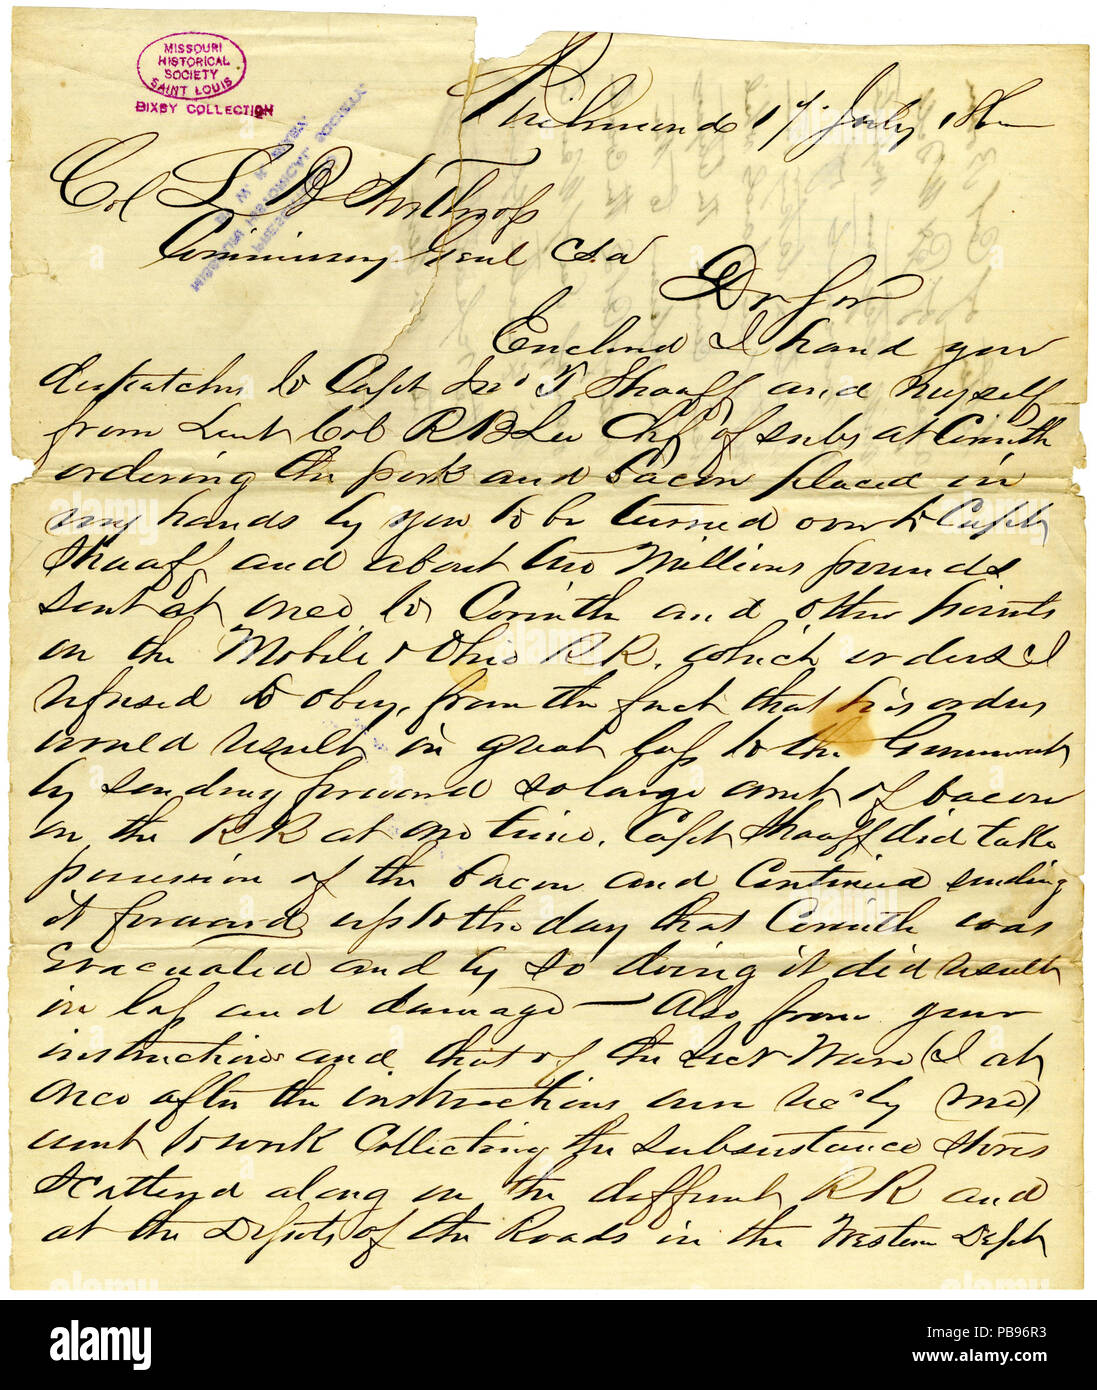 MISSOURI
HISTORICAL
SOCIETY
SAINT LOUIS
BIXBY COLLECTION
Richmond 17 July
Col L B Northrop
Commissary Genl C S A
Dr Sir
Enclosed I hand you
dispatches to Capt Jno T Shaaff and myself
from Lieut Col R B Lee Chf of subs at Corinth
ordering the pork and bacon placed in
my hands by you to be turned over to Capt
Shaaff and about two Millions pounds
sent at once to Corinth and other points
on the Mobile & Ohio R R. which orders I
refused to obey, from the fact that his orders
would result in great loss to the Government
by sending forward so large amt of bacon
on the R R at one time. Capt Shaaff did take
possession of the bacon and Continued sending
it forward up to the day that Corinth was
Evacuated and by so doing it did result
in loss and damage — Also from your
instructions and that of the Sect Warr (I at
once after the instructions were recd by me)
went to work Collecting the Subsistance Stores
Scattered along on the different R R and
at the Depots of the Roads in the Western Dept
alamy
Image ID: PB96R3
www.alamy.com